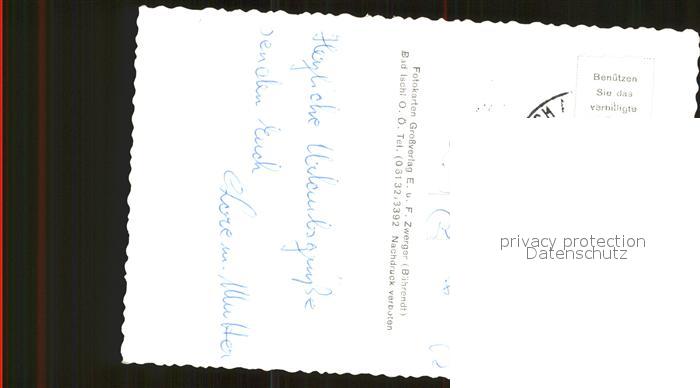 Herzliche Urlaubsgrüße
senden Euch
Lore u. Mutter
Fotokarten Großverlag E. u. F. Zwerger (Bährendt)
Bad Ischl O. Ö. Tel. (06132) 3392 Nachdruck verboten
Benützen
Sie das
verbilligte
privacy protection
Datenschutz